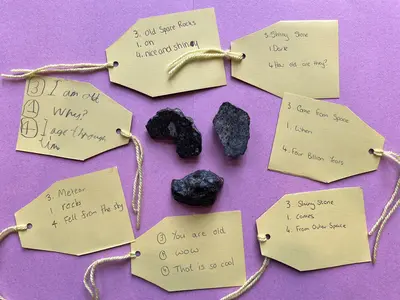 3. old Space Rocks
1. oh
4. nice and shiney
3. Shiny Stone
1. Dark
4. How old are they?
③ I am old
① Why?
④ I age through
time
3. Come From Space
1. When
4. Four Billion Years
3. Meteor
1 rocks
4 Fell from the sky
③ You are old
① WOW
④ That is so cool
3. Shiny Stone
1. Comes
4. From Outer Space